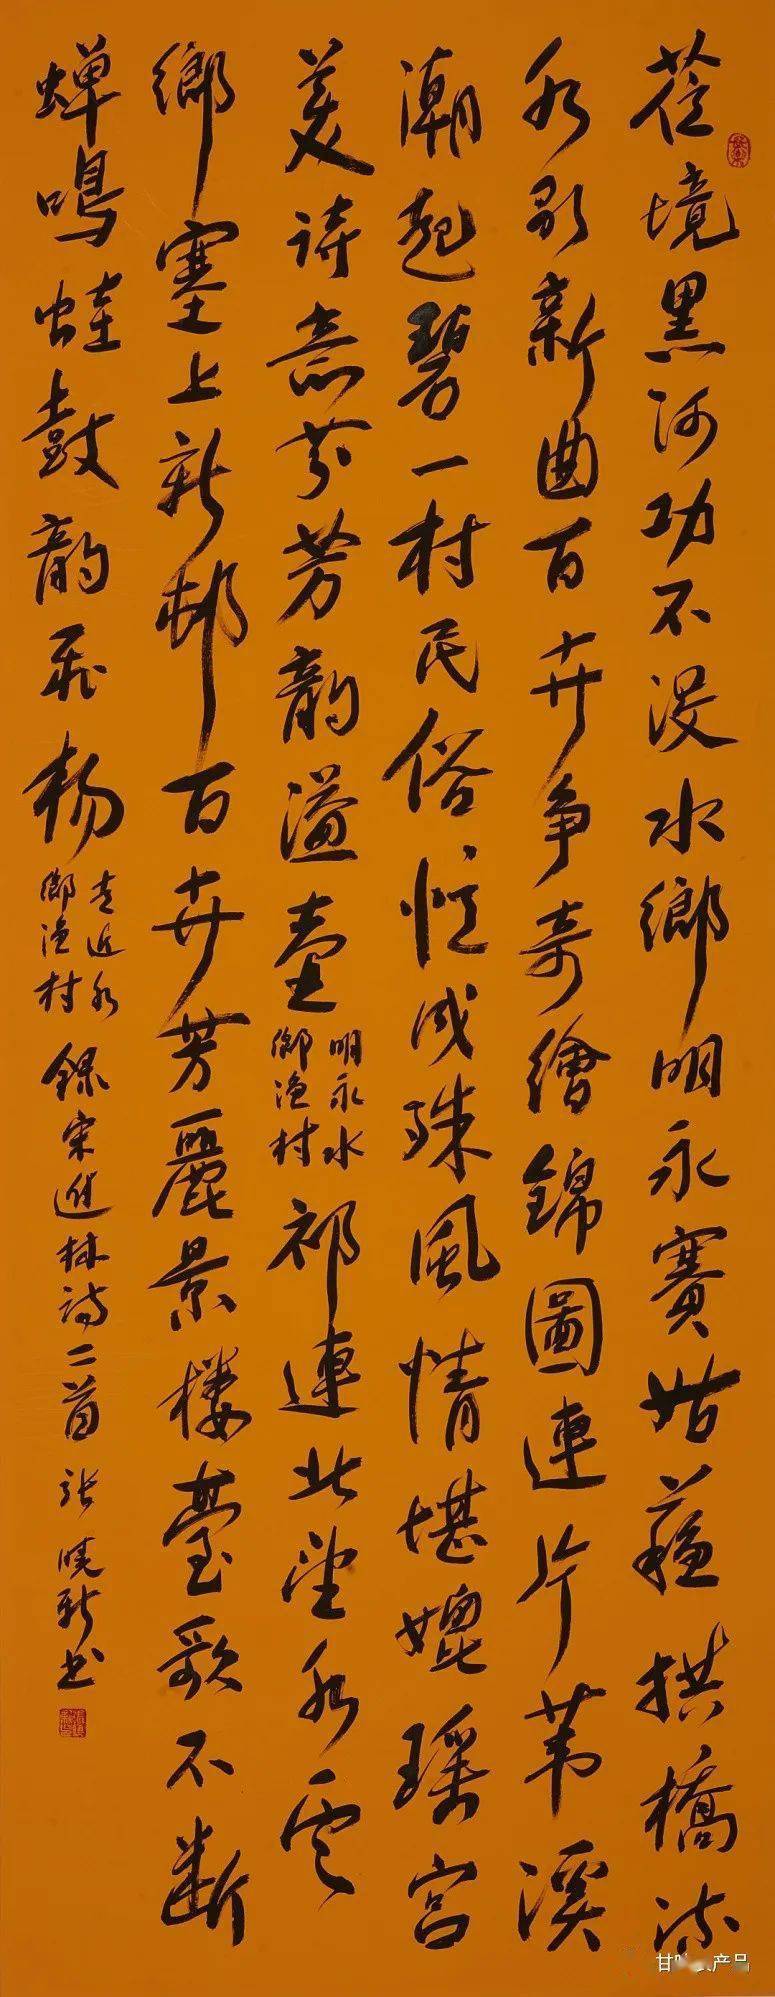 莅境黑河功不没水鄉明永賽姑蘇拱橋流
水新曲百卉争奇繪錦圖連片苇溪
潮起碧一村民俗成殊風情堪媲瑶宫
美诗意芬芳韵溢壶明永水鄉渔村祁連北望水雲
鄉塞上新邨百卉芳麗景楼臺歌不断
蝉鸣蛙鼓韵飛杨走近水鄉渔村錄宋進林詩二首张晓新书
甘产品